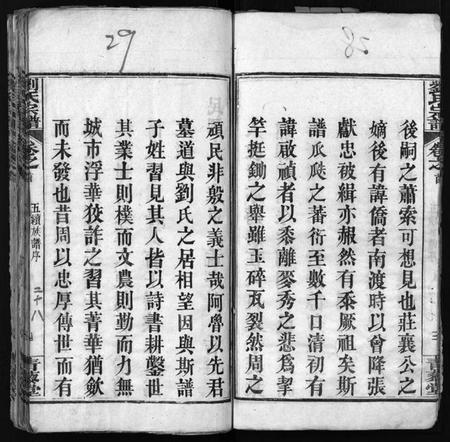 85
後嗣之蕭索可想見也莊襄公之
嫡後有諱僑者南渡時以曾降張
獻忠被緝亦赧然有忝厥祖矣斯
譜瓜瓞之蕃衍至數千口清初有
諱敢禎者以黍離麥秀之悲爲挈
竿挺鋤之舉雖玉碎瓦裂然周之
29
頑民非殷之義士哉阿魯以先君
墓道與劉氏之居相望因與斯譜
子姓習見其人皆以詩書耕鑿世
其業士則樸而文農則勤而力無
城市浮華狡詐之習其菁華猶歛
而未發也昔周以忠厚傳世而有
劉氏宗譜
卷之首
五續族譜序
二十八
青藜堂